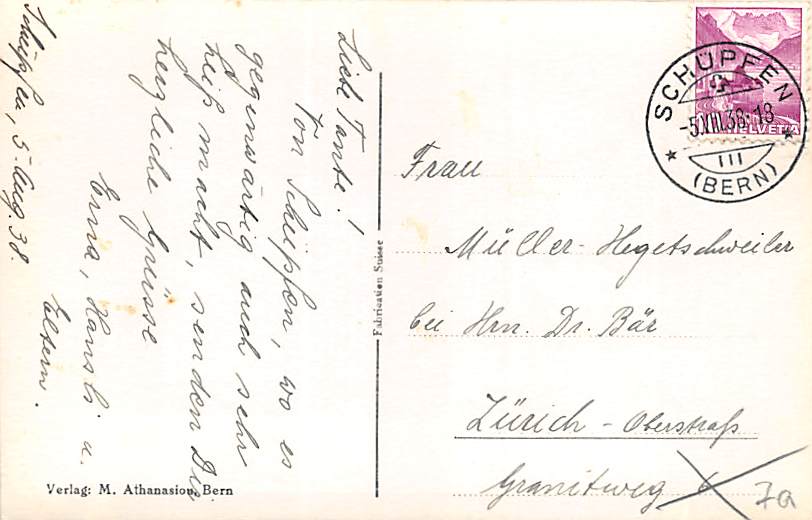 Schüpfen, 5. Aug. 38.
Liebe Tante!
Von Schüpfen, wo es
gegenwärtig auch sehr
heiß macht, senden Dir
herzliche Grüsse
Erna, Hansli u.
Eltern.
Verlag: M. Athanasiou, Bern
Fabrication Suisse
SCHÜPFEN
-5.VIII.38.-18
III
(BERN)
HELVETIA
Frau
Müller-Hegetschweiler
bei Hrn. Dr. Bär
Zürich - Oberstraß
Granitweg 6
7a